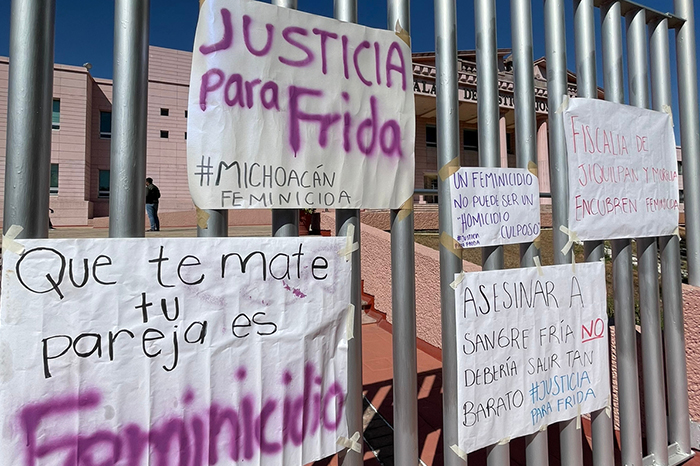 JUSTICIA
para Frida
#MICHOACÁN
FEMINICIDA
UN FEMINICIDIO
NO PUEDE SER UN
"HOMICIDIO
CULPOSO"
#JUSTICIA
PARA FRIDA
FISCALIA DE
JIQUILPAN Y MORELIA
ENCUBREN FEMINICIDA
Que te mate
tu
pareja es
Feminicidio
ASESINAR A
SANGRE FRÍA NO
DEBERÍA SALIR TAN
BARATO #JUSTICIA
PARA FRIDA